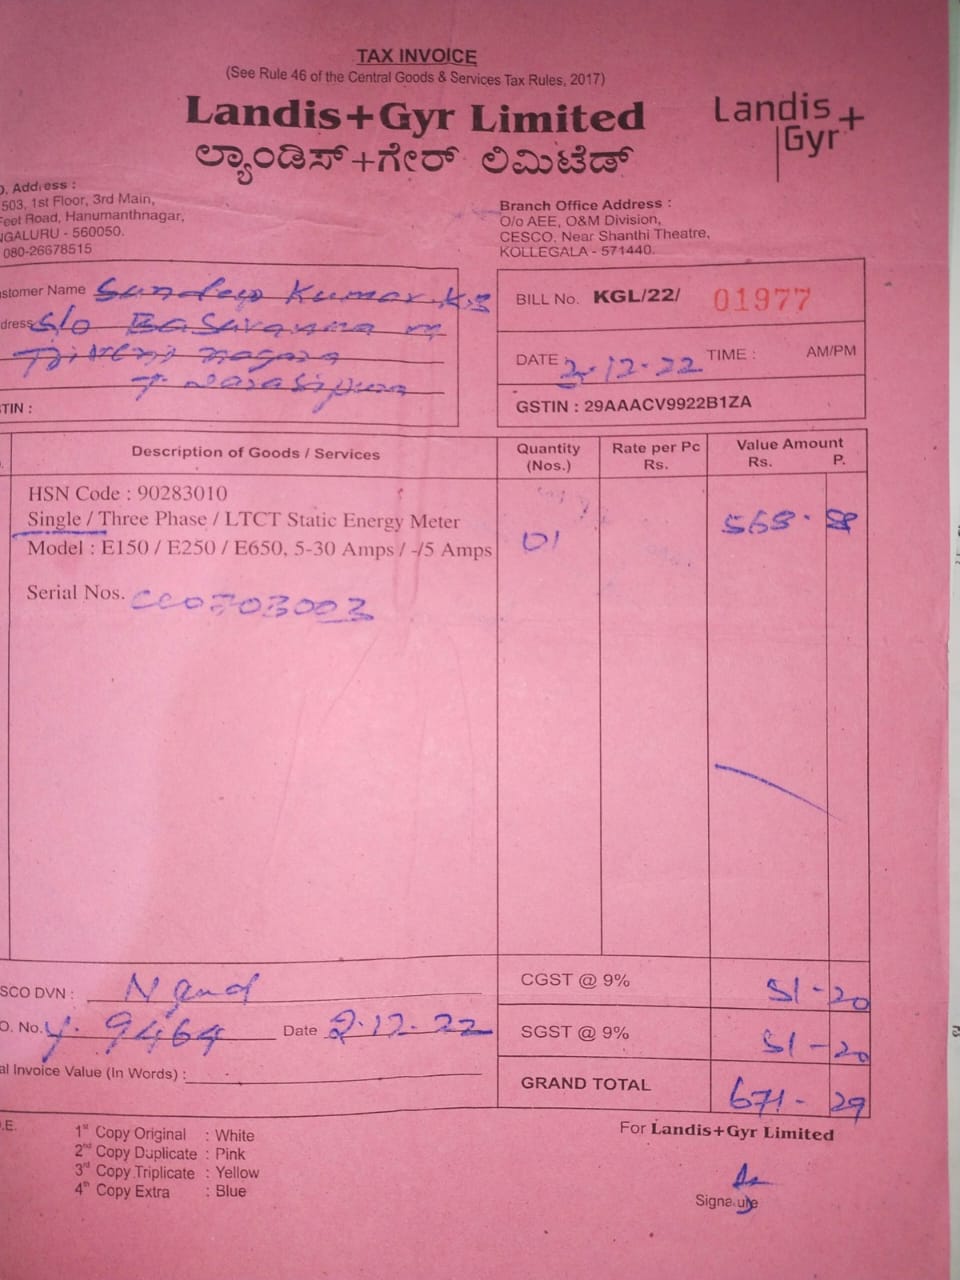 TAX INVOICE
(See Rule 46 of the Central Goods & Services Tax Rules, 2017)
Landis+Gyr Limited
ಲ್ಯಾಂಡಿಸ್+ಗೇರ್ ಲಿಮಿಟೆಡ್
Landis+
Gyr
Address :
503, 1st Floor, 3rd Main,
Feet Road, Hanumanthnagar,
NGALURU - 560050.
080-26678515
Branch Office Address :
O/o AEE, O&M Division,
CESCO, Near Shanthi Theatre,
KOLLEGALA - 571440.
stomer Name Sundeep Kumar. K.S
dress S/o Basavanna m
nagara
T. Narasipura
TIN :
BILL No. KGL/22/ 01977
DATE 2-12-22 TIME : AM/PM
GSTIN : 29AAACV9922B1ZA
Description of Goods / Services Quantity (Nos.) Rate per Pc Rs. Value Amount Rs. P.
HSN Code : 90283010
Single / Three Phase / LTCT Static Energy Meter 568-
Model : E150 / E250 / E650, 5-30 Amps / -/5 Amps 01
Serial Nos.
SCO DVN : N gud
CGST @ 9% 51-20
O. No. Y. 9464 Date 2-12-22
SGST @ 9% 51-20
al Invoice Value (In Words) :
GRAND TOTAL 671-29
.E.
1st Copy Original : White
2nd Copy Duplicate : Pink
3rd Copy Triplicate : Yellow
4th Copy Extra : Blue
For Landis+Gyr Limited
Signature